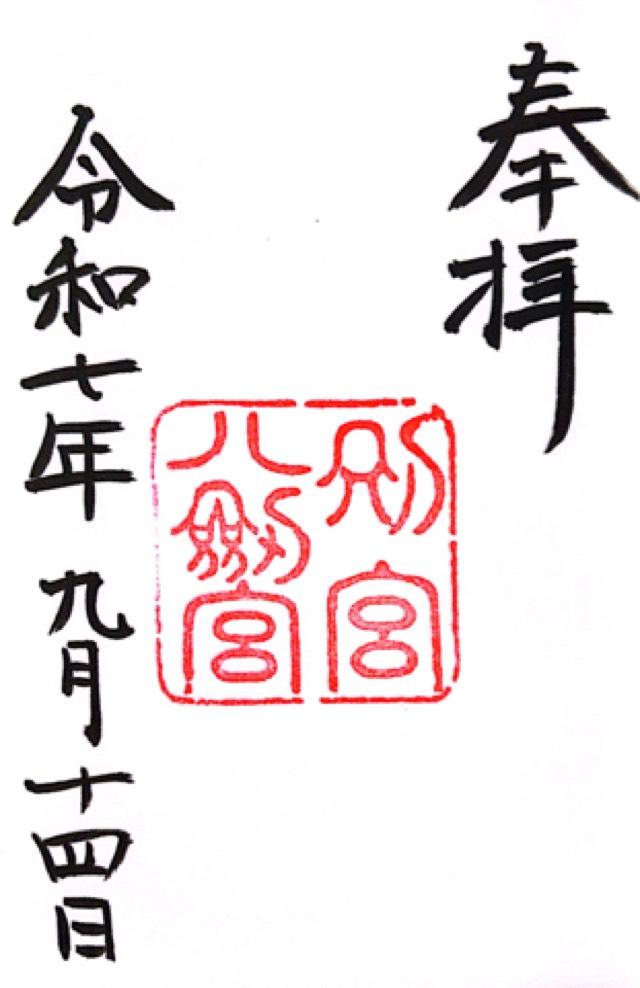 奉拝
別宮
八剱宮
令和七年九月十四日